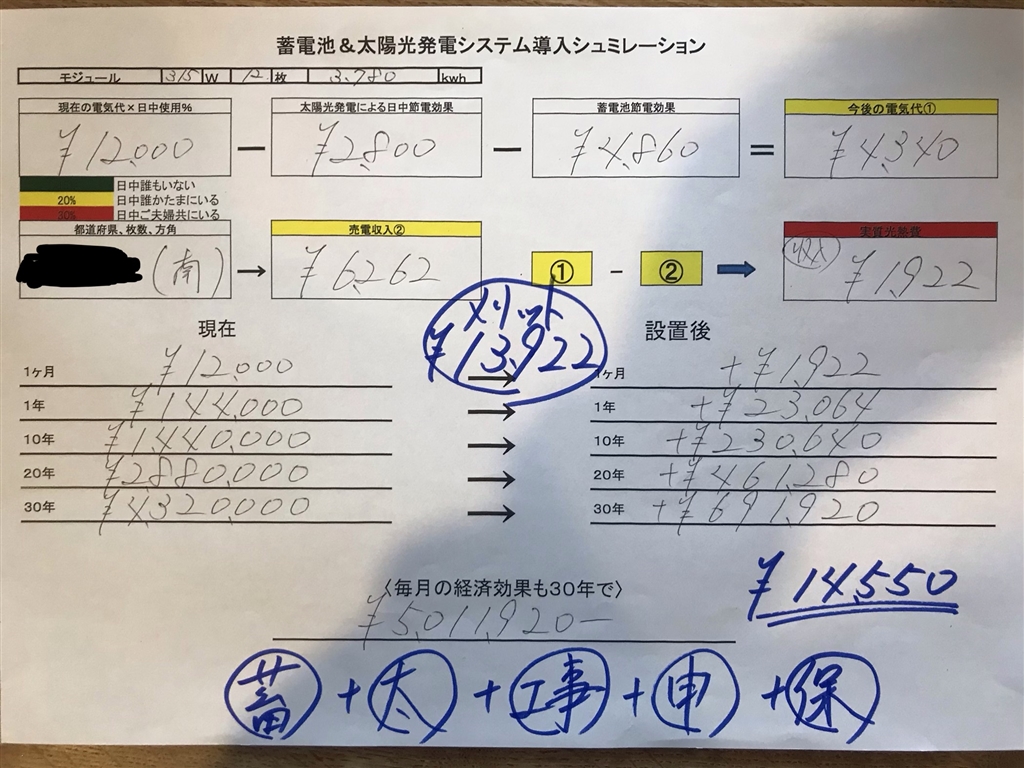 蓄電池＆太陽光発電システム導入シュミレーション
モジュール 315 W 12 枚 3.780 kwh
現在の電気代×日中使用% 太陽光発電による日中節電効果 蓄電池節電効果 今後の電気代①
¥12.000 － ¥2.800 － ¥4.860 ＝ ¥4.340
日中誰もいない
20% 日中誰かたまにいる
30% 日中ご夫婦共にいる
都道府県、枚数、方角 売電収入② 実質光熱費
(南) → ¥6.262 ① － ② ¥1,922
メリット
¥13,922
現在 設置後
1ヶ月 ¥12.000 → ヶ月 +¥1.922
1年 ¥144.000 → 1年 +¥23.064
10年 ¥1.440.000 → 10年 +¥230.640
20年 ¥2.880.000 → 20年 +¥461.280
30年 ¥4.320.000 → 30年 +¥691.920
¥14,550
〈毎月の経済効果も30年で〉
¥5,011,920－
蓄 + 太 + 工事 + 申 + 保